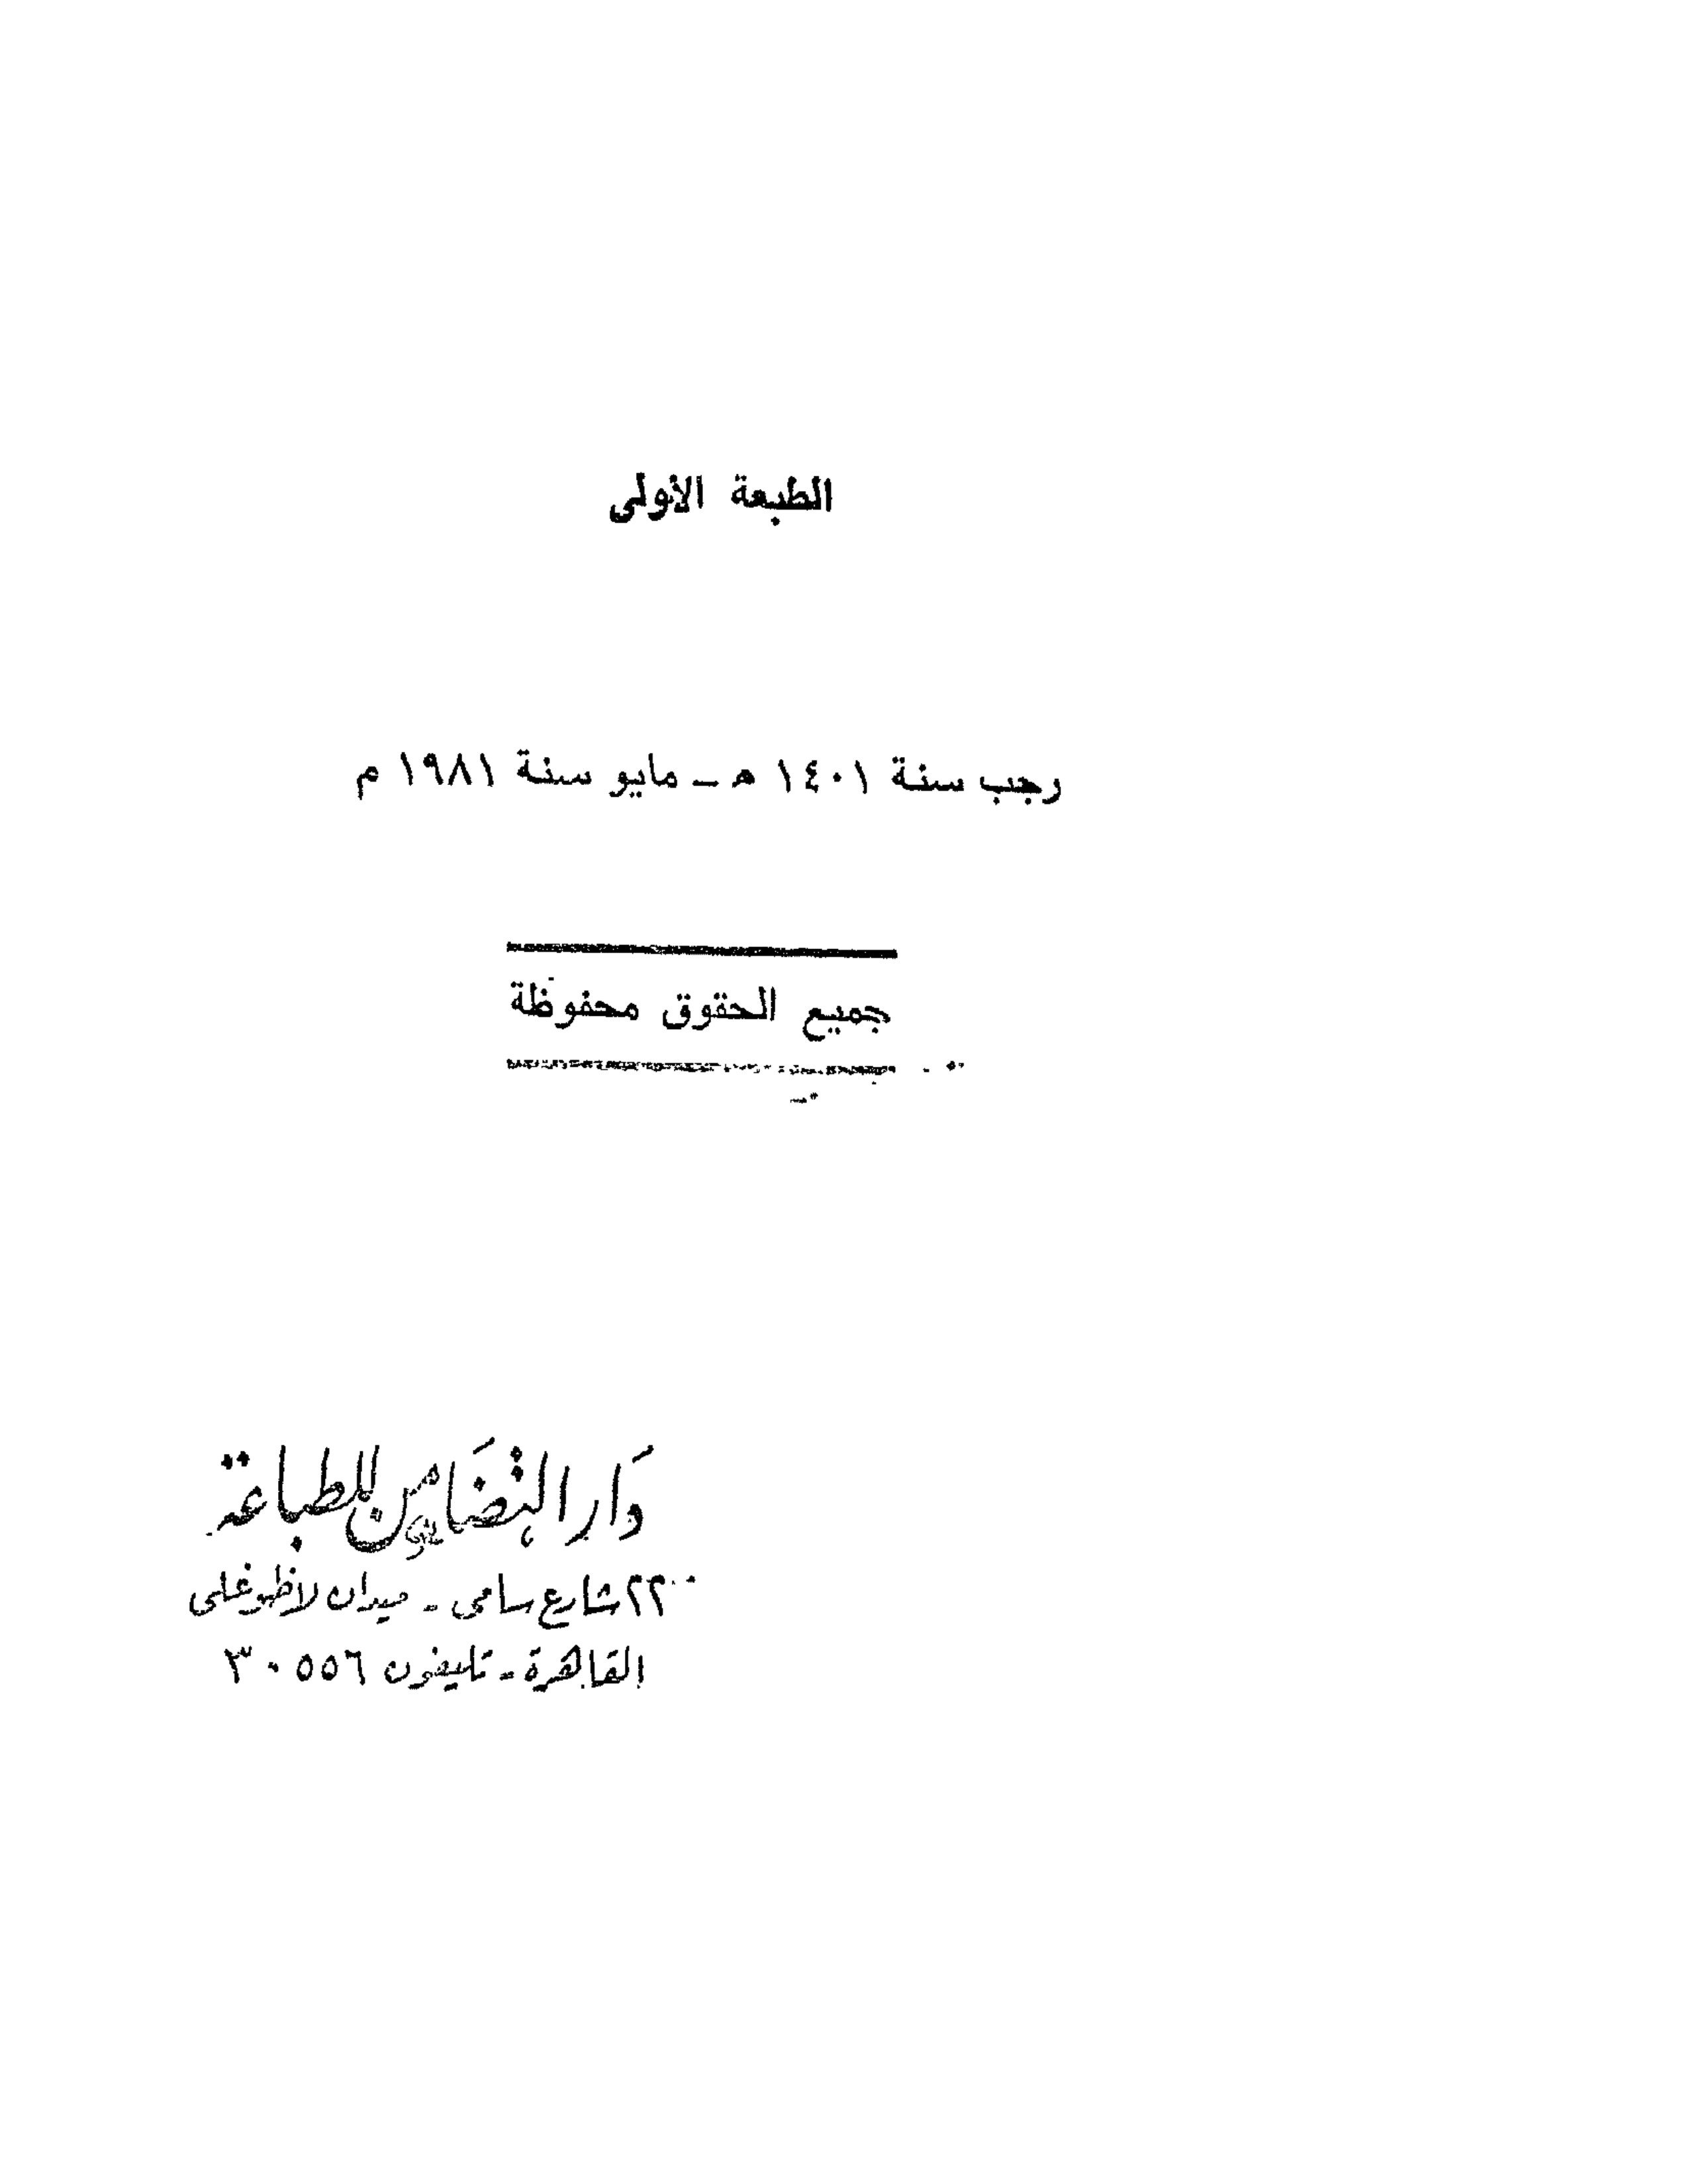 الطبعة الأولى
رجب سنة ١٤٠١ هـ - مايو سنة ١٩٨١ م
جميع الحقوق محفوظة
دَار التضَامن للطباعة
٢٢ شارع سامى - ميدان لاظوغلى
القاهرة - تليفون ٣٠٥٥٦